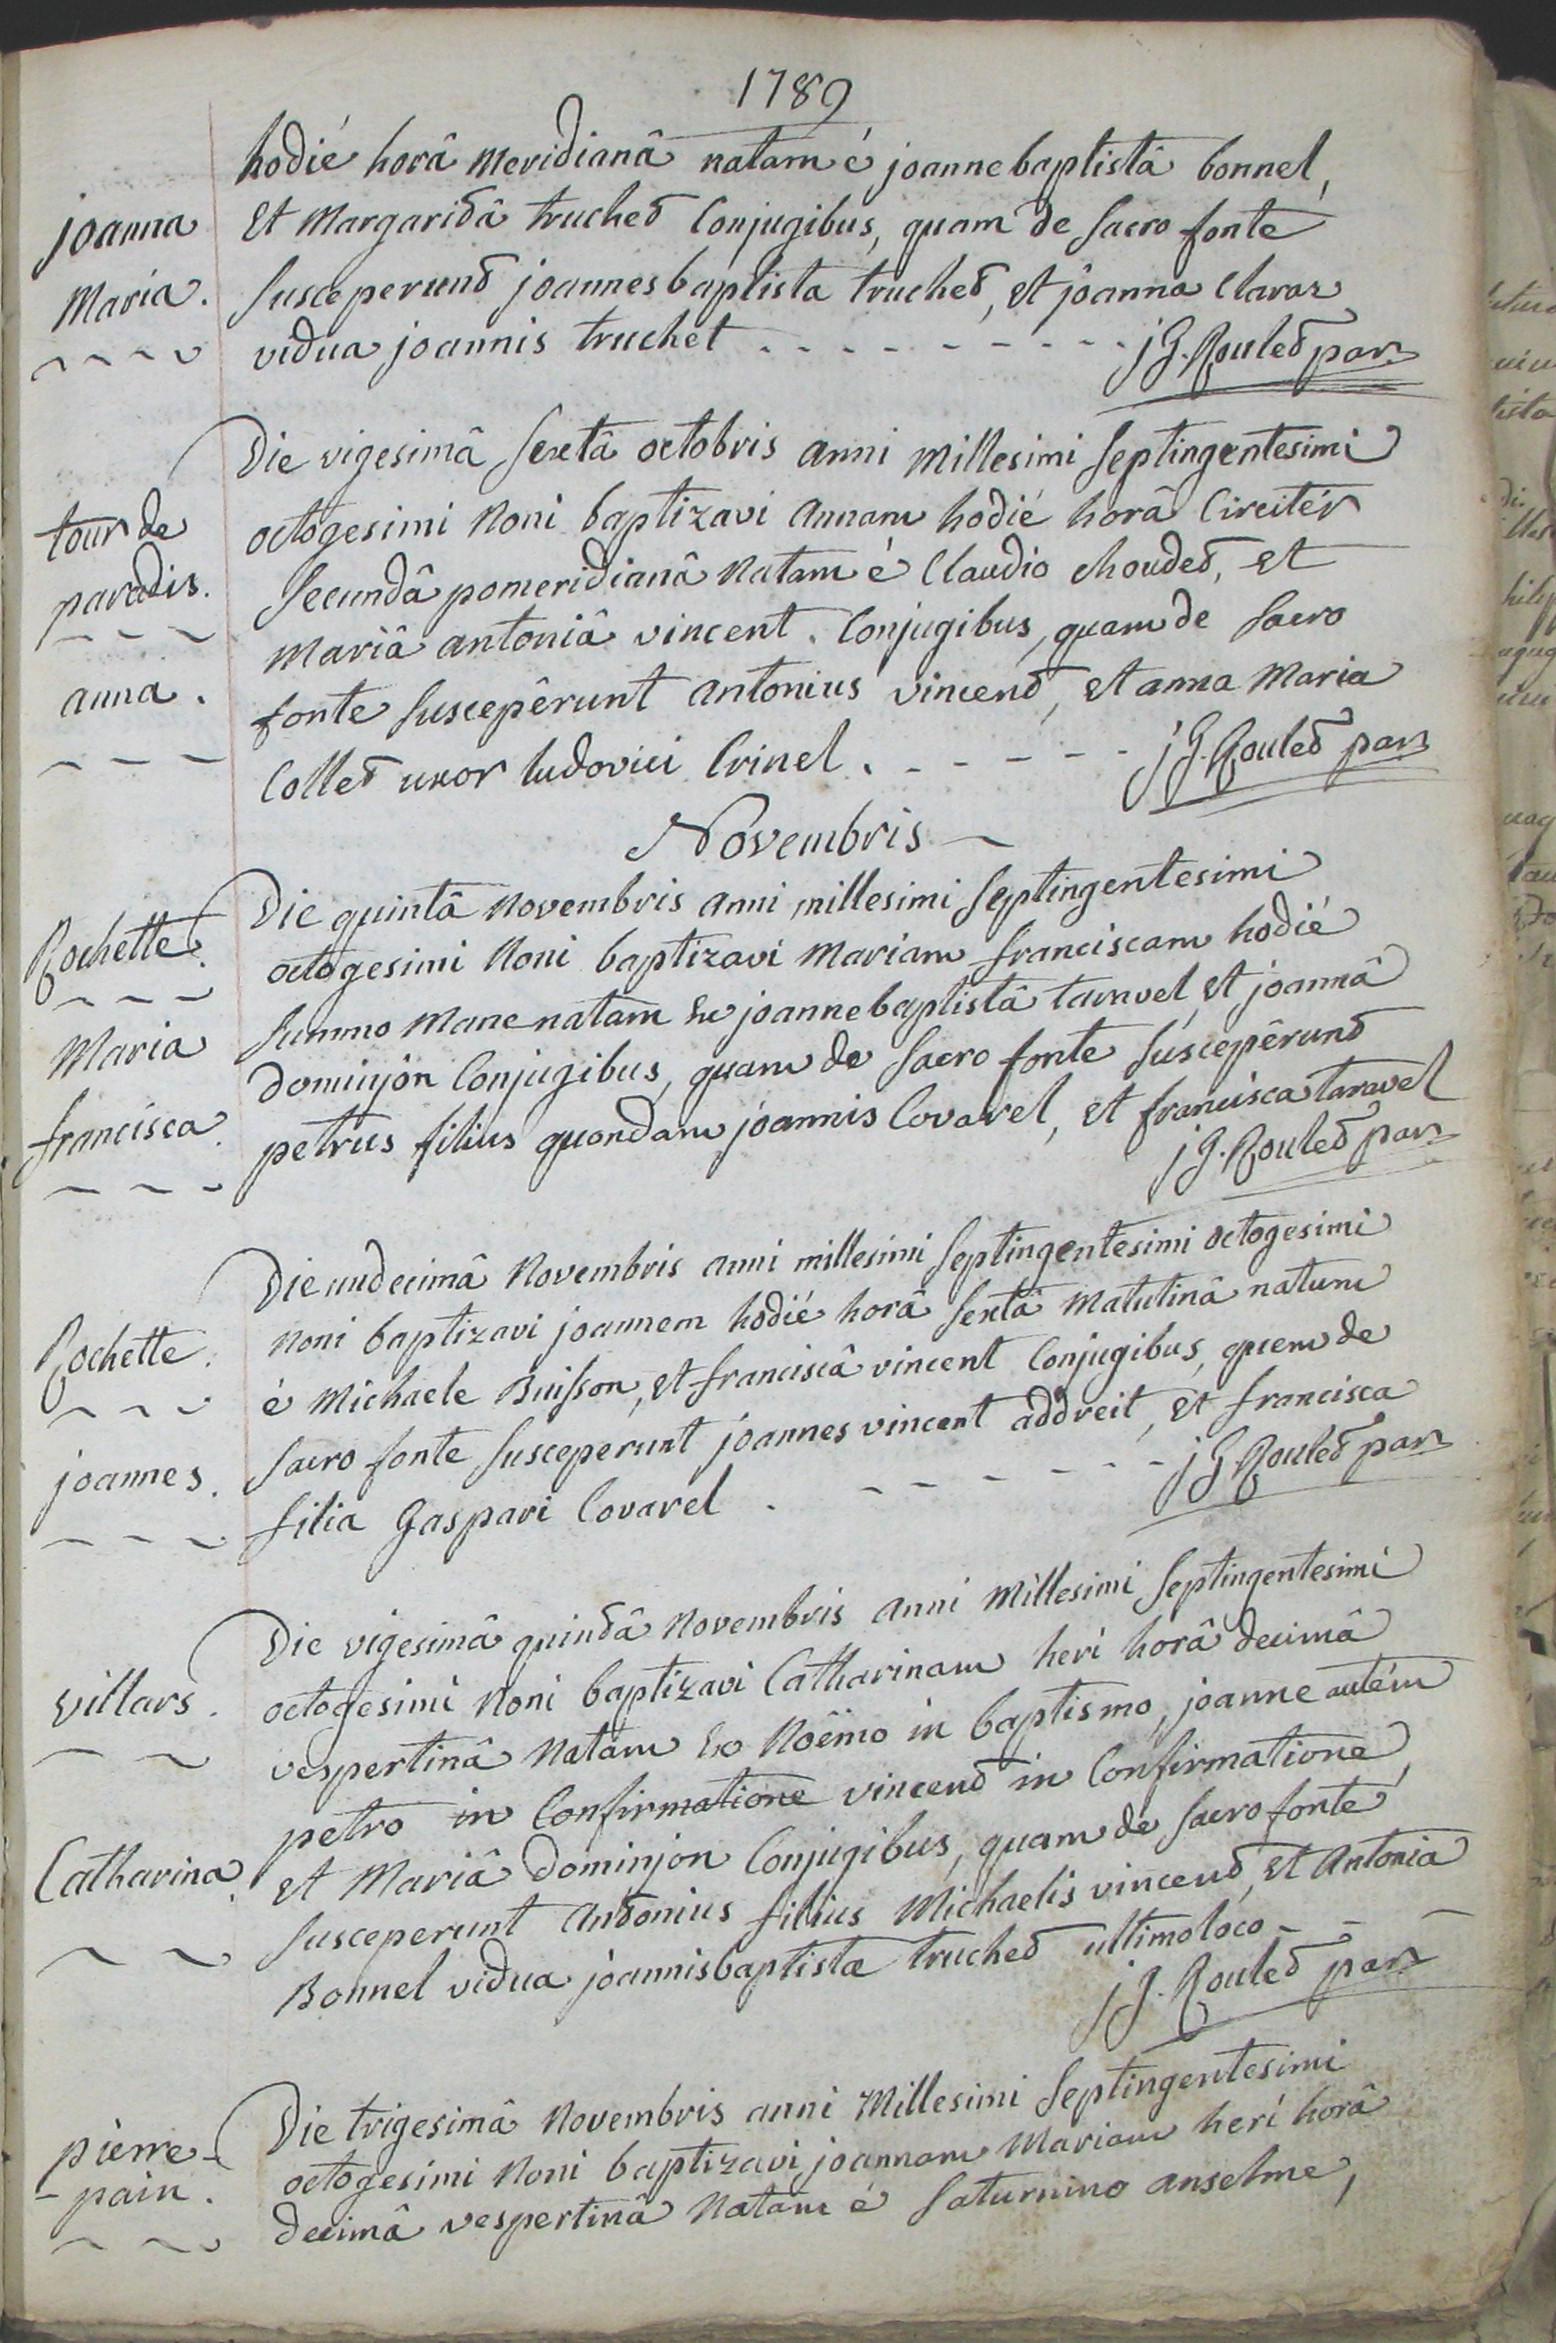 1789
hodié horâ meridianâ natam é joanne baptistâ bonnel,
joanna
Et Margaridâ truchet Conjugibus, quam de Sacro fonte
Maria.
susceperunt joannes baptista truchet, et joanna Claraz
vidua joannis truchet - - - - - - - - - j G. Roulet par
Die vigesimâ Sextâ octobris anni millesimi Septingentesimi
tour de
octogesimi Noni baptizavi annam hodié horâ Circitér
paradis.
Secundâ pomeridianâ Natam é Claudio choudet, et
Mariâ antoniâ vincent. Conjugibus, quam de Sacro
anna.
fonte Suscepêrunt antonius vincent, et anna Maria
Collet uxor ludovici Crinel. - - - - - j G. Roulet par
Novembris
Die quintâ Novembris anni millesimi Septingentesimi
Rochette.
octogesimi Noni baptizavi Mariam franciscam hodié
Summo Mane natam Ex joanne baptistâ taravel, et joannâ
Maria
Dominjon Conjugibus, quam de Sacro fonte Suscepêrunt
francisca.
petrus filius quondam joannis Covarel, et francisca taravel
j G. Roulet par
Die undecimâ Novembris anni millesimi Septingentesimi octogesimi
Noni baptizavi joannem hodié horâ Sextâ Matutinâ natum
Rochette.
é Michaele Buisson, et franciscâ vincent Conjugibus, quem de
Sacro fonte Susceperunt joannes vincent addreit, et francisca
joannes.
filia Gaspari Covarel. - - - - - - j G Roulet par
Die vigesimâ quintâ Novembris anni Millesimi Septingentesimi
villars.
octogesimi Noni baptizavi Catharinam heri horâ decimâ
vespertinâ Natam Ex Noëmo in baptismo, joanne autém
petro in Confirmatione vincent in Confirmatione,
Catharina.
et Mariâ Dominjon Conjugibus, quam de Sacro fonte
Susceperunt antonius filius Michaelis vincent, et Antonia
Bonnel vidua joannis baptistæ truchet ultimoloco - - -
j G. Roulet par
Die trigesimâ Novembris anni Millesimi Septingentesimi
pierre-
octogesimi Noni baptizavi joannam Mariam heri horâ
-pain.
decimâ vespertinâ Natam é Saturnino anselme,